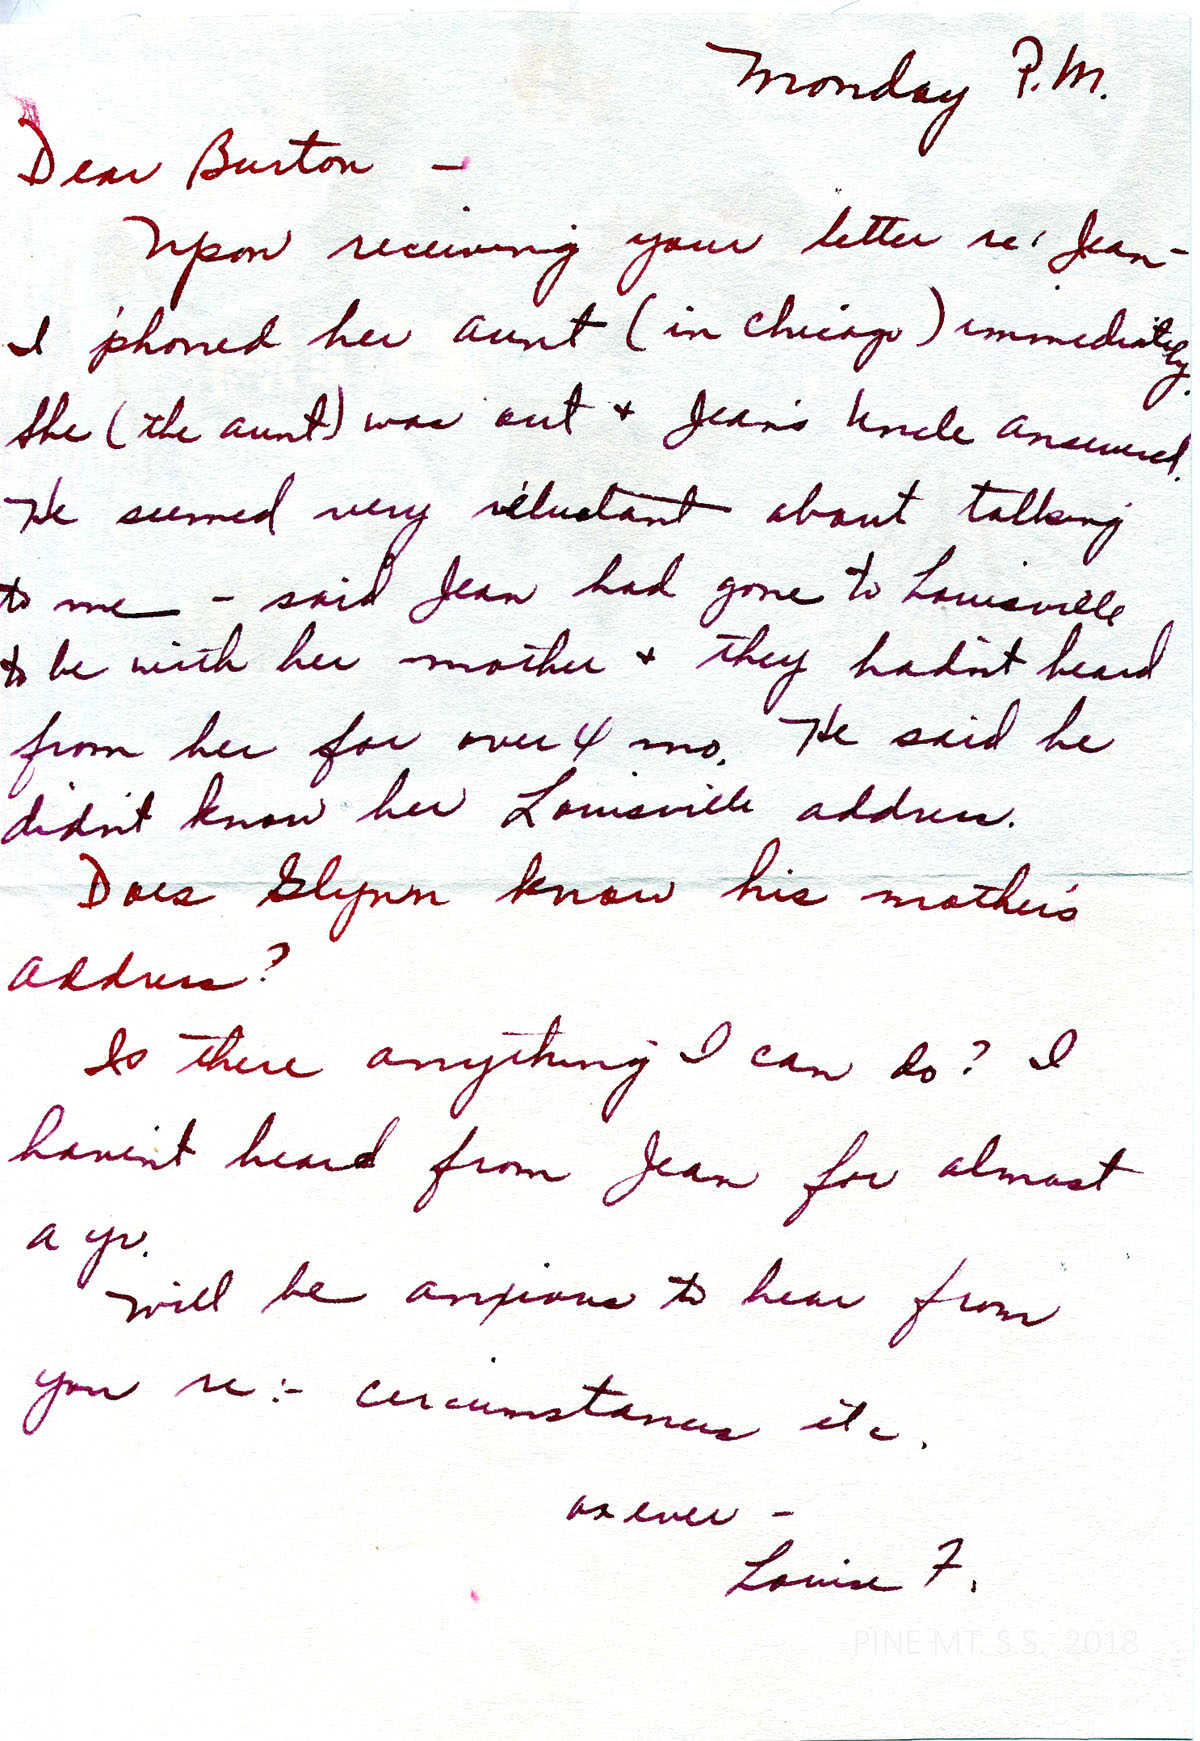 Monday P.M.
Dear Burton -
Upon receiving your letter re: Jean -
I 'phoned her aunt (in Chicago) immediately.
She (the aunt) was out + Jean's Uncle answered.
He seemed very reluctant about talking
to me - said Jean had gone to Louisville
to be with her mother + they hadn't heard
from her for over 4 mo. He said he
didn't know her Louisville address.
Does Glynn know his mother's
address?
Is there anything I can do? I
haven't heard from Jean for almost
a yr.
Will be anxious to hear from
you re:- circumstances etc.
as ever -
Louise F.
PINE MT. S.S. 2018